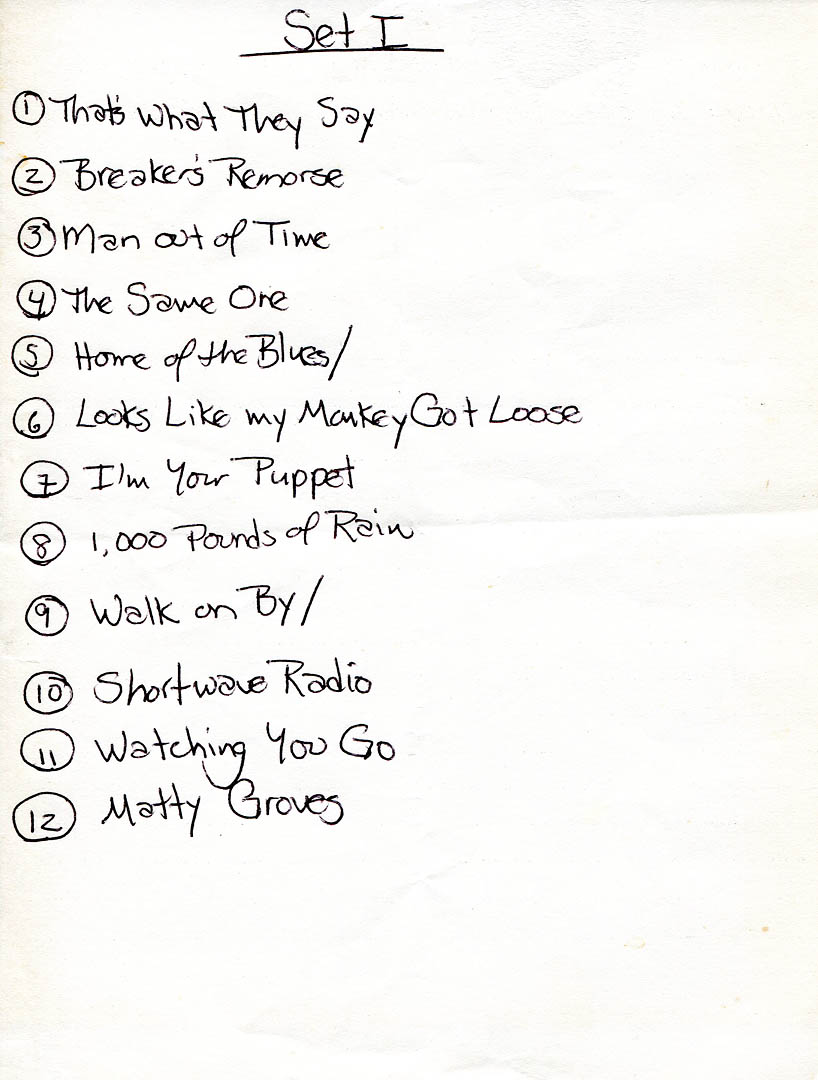 Set I
① That's What They Say
② Breaker's Remorse
③ Man out of Time
④ The Same One
⑤ Home of the Blues/
⑥ Looks Like my Monkey Got Loose
⑦ I'm Your Puppet
⑧ 1,000 Pounds of Rain
⑨ Walk on By/
⑩ Shortwave Radio
⑪ Watching You Go
⑫ Matty Groves